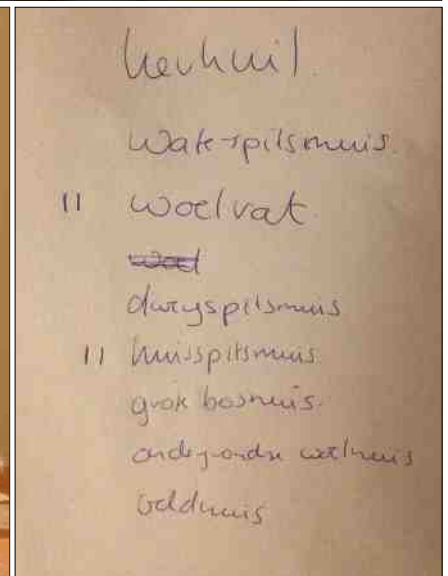 kerkuil.
Waterspitsmuis.
11 woelrat.
woel
dwergspitsmuis
11 huisspitsmuis
grote bosmuis.
ondergrondse woelmuis
veldmuis